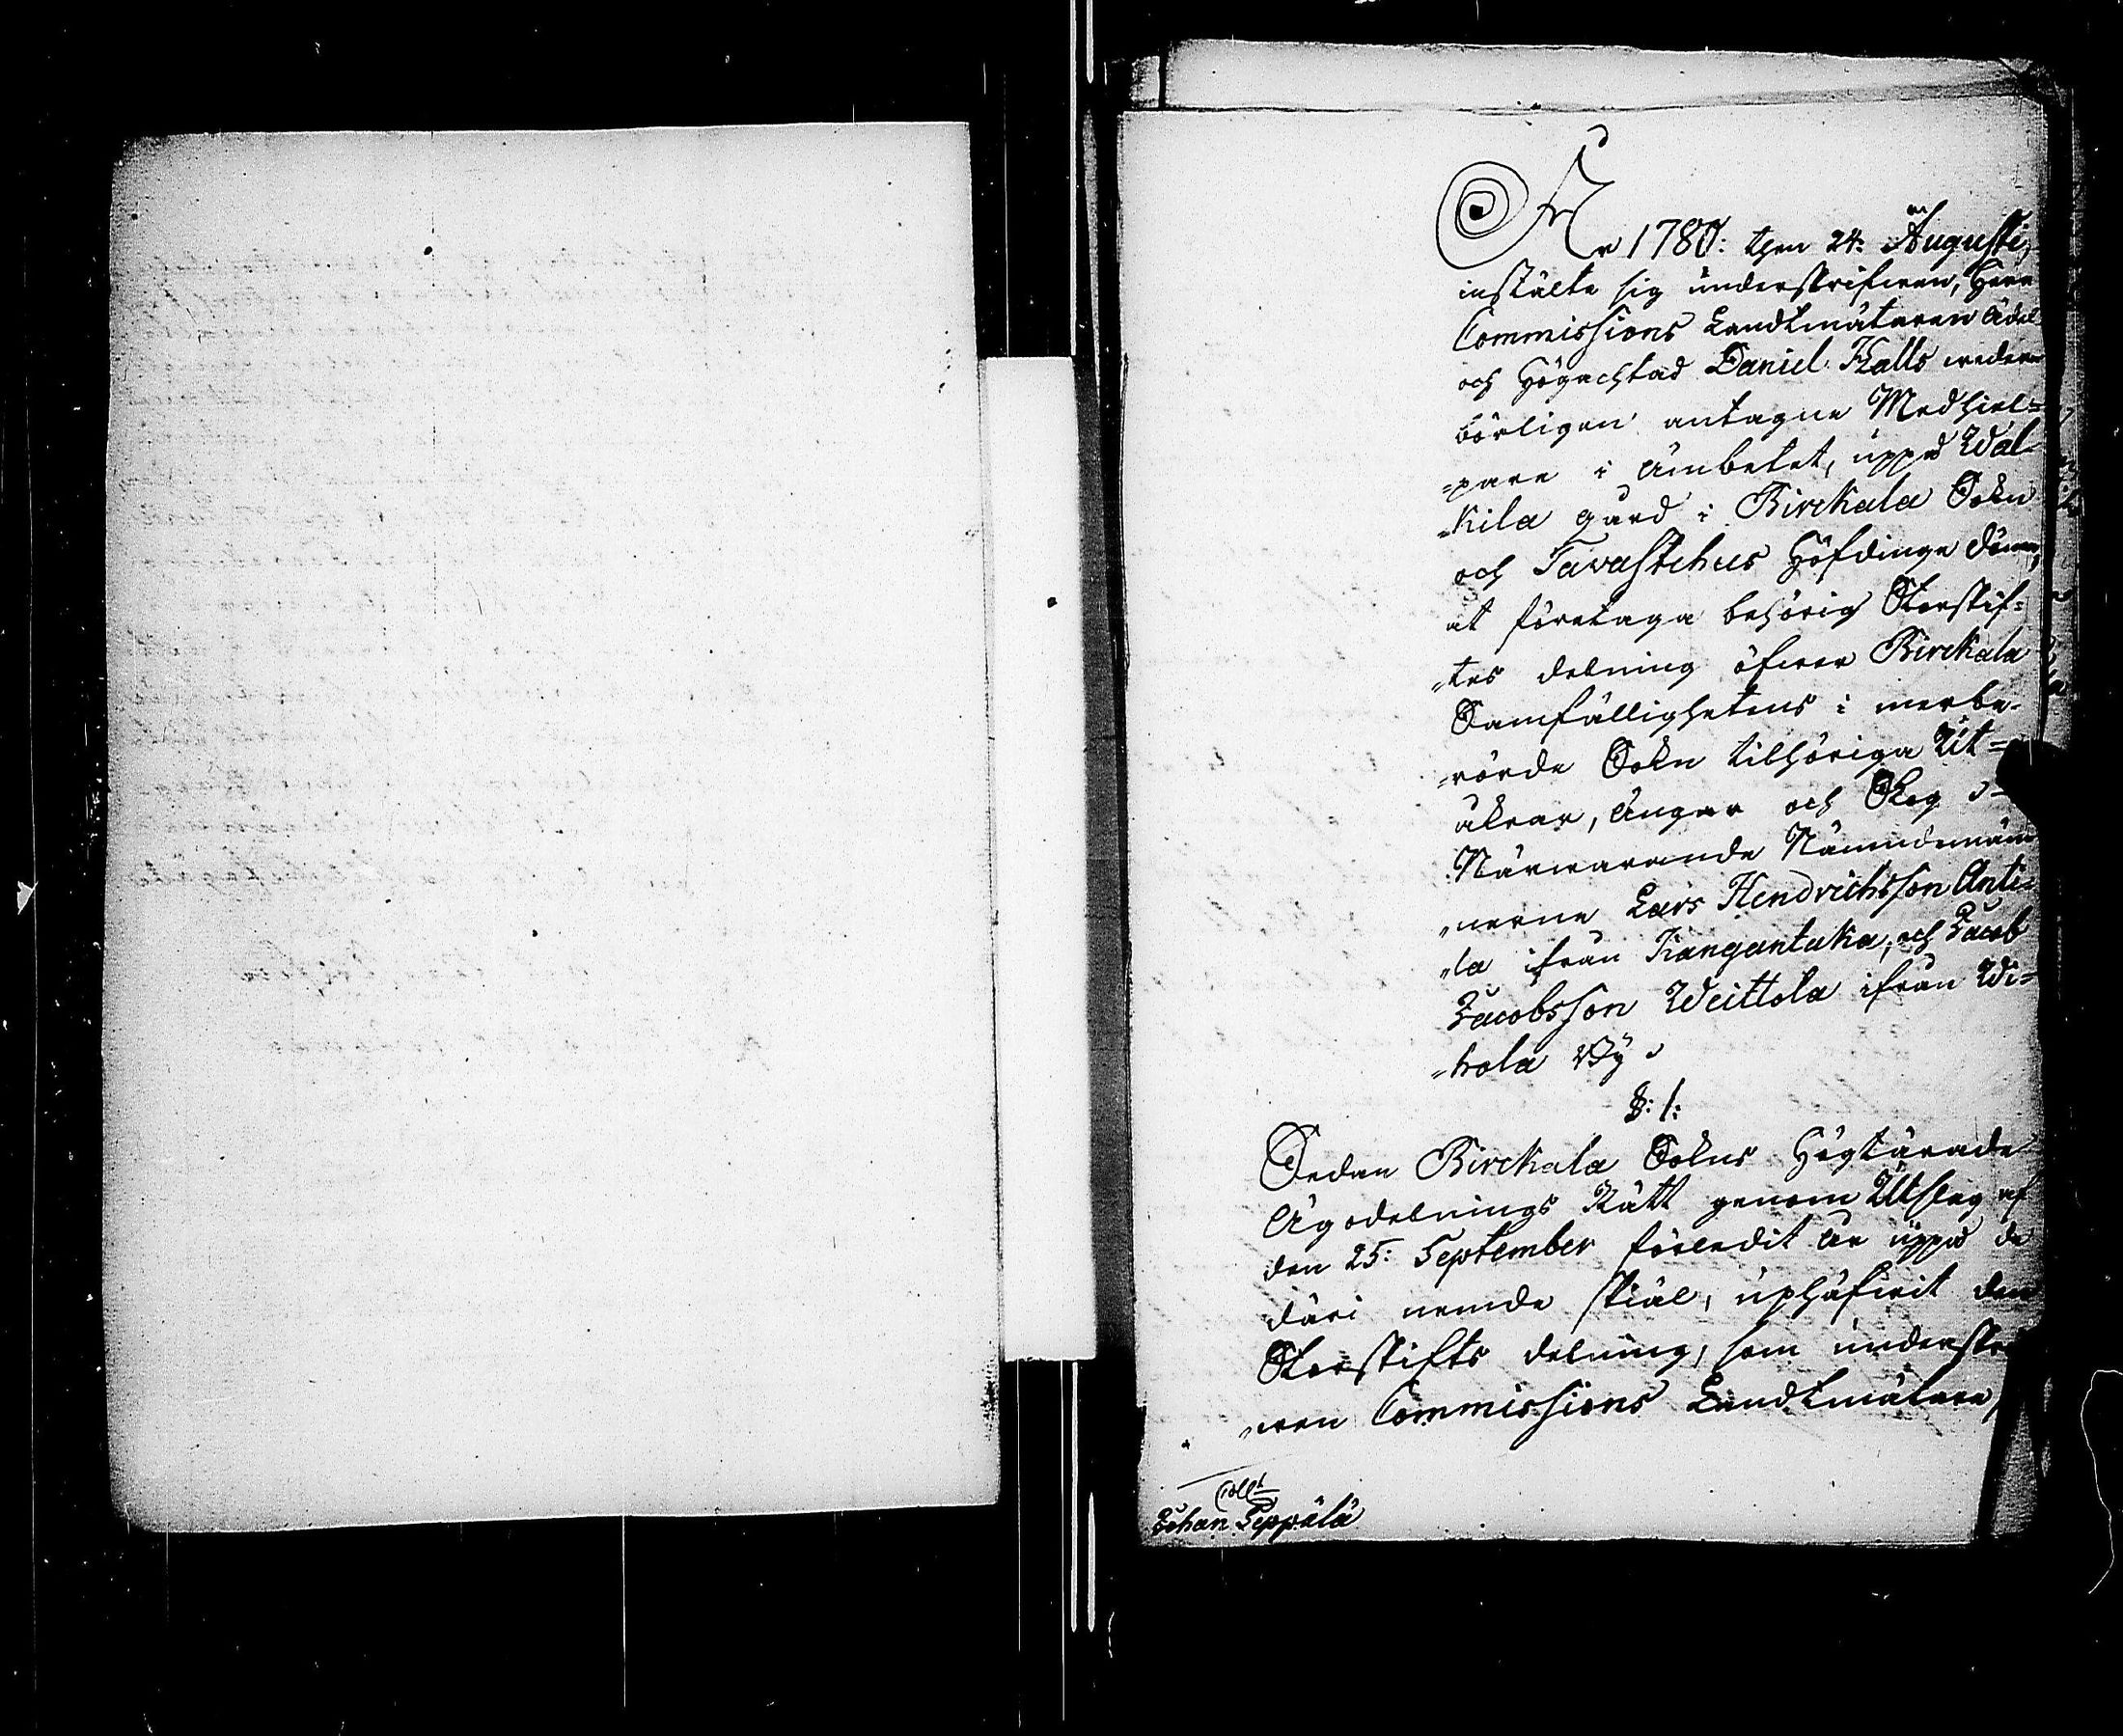 År 1780: then 24: Augusti,
instälte sig underskrifwen, Herr
Commissions Landtmätaren Ädel
och Högachtad Daniel Halls weder-
börligen antagne Medhiel=
=pare i Ämbetet, uppå Wal-
=kila gård i Birckala Sokn
och Tavastehus Höfdinge döme,
at företaga behörig Storskif=
=tes delning öfwer Birckala
Samfällighetens i merbe-
=rörde Sokn tilhöriga Ut=
åkrar, Ängar och Skog
Närwarande Nämndemän
=nerne Lars Hendrichsson Anti=
=la ifrån Kangantaka, och Jacob
Jacobsson Weittola ifrån Wi=
=hola By
§: 1:
Sedan Birckala Sokns Högtärade
Ägodelnings Rätt genom Utslag af
den 25: September förledit år uppå de
däri nemde skiäl, uphäfwit den
Storskifts delning, som underskre
=wen Commissions Landtmätare,
Coll.
Johan Seppälä